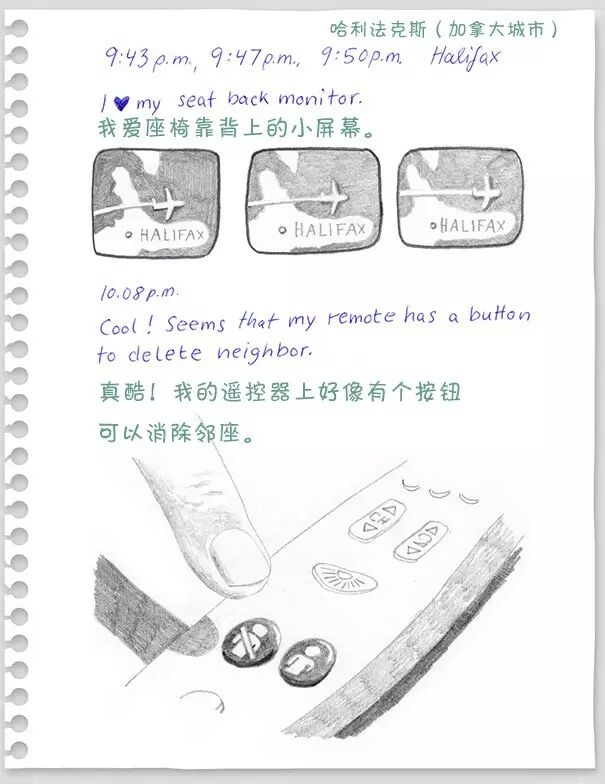 哈利法克斯（加拿大城市）
9:43 p.m., 9:47 p.m., 9:50 p.m. Halifax
I ♥ my seat back monitor.
我爱座椅靠背上的小屏幕。
HALIFAX
HALIFAX
HALIFAX
10.08 p.m.
Cool! Seems that my remote has a button
to delete neighbor.
真酷！我的遥控器上好像有个按钮
可以消除邻座。